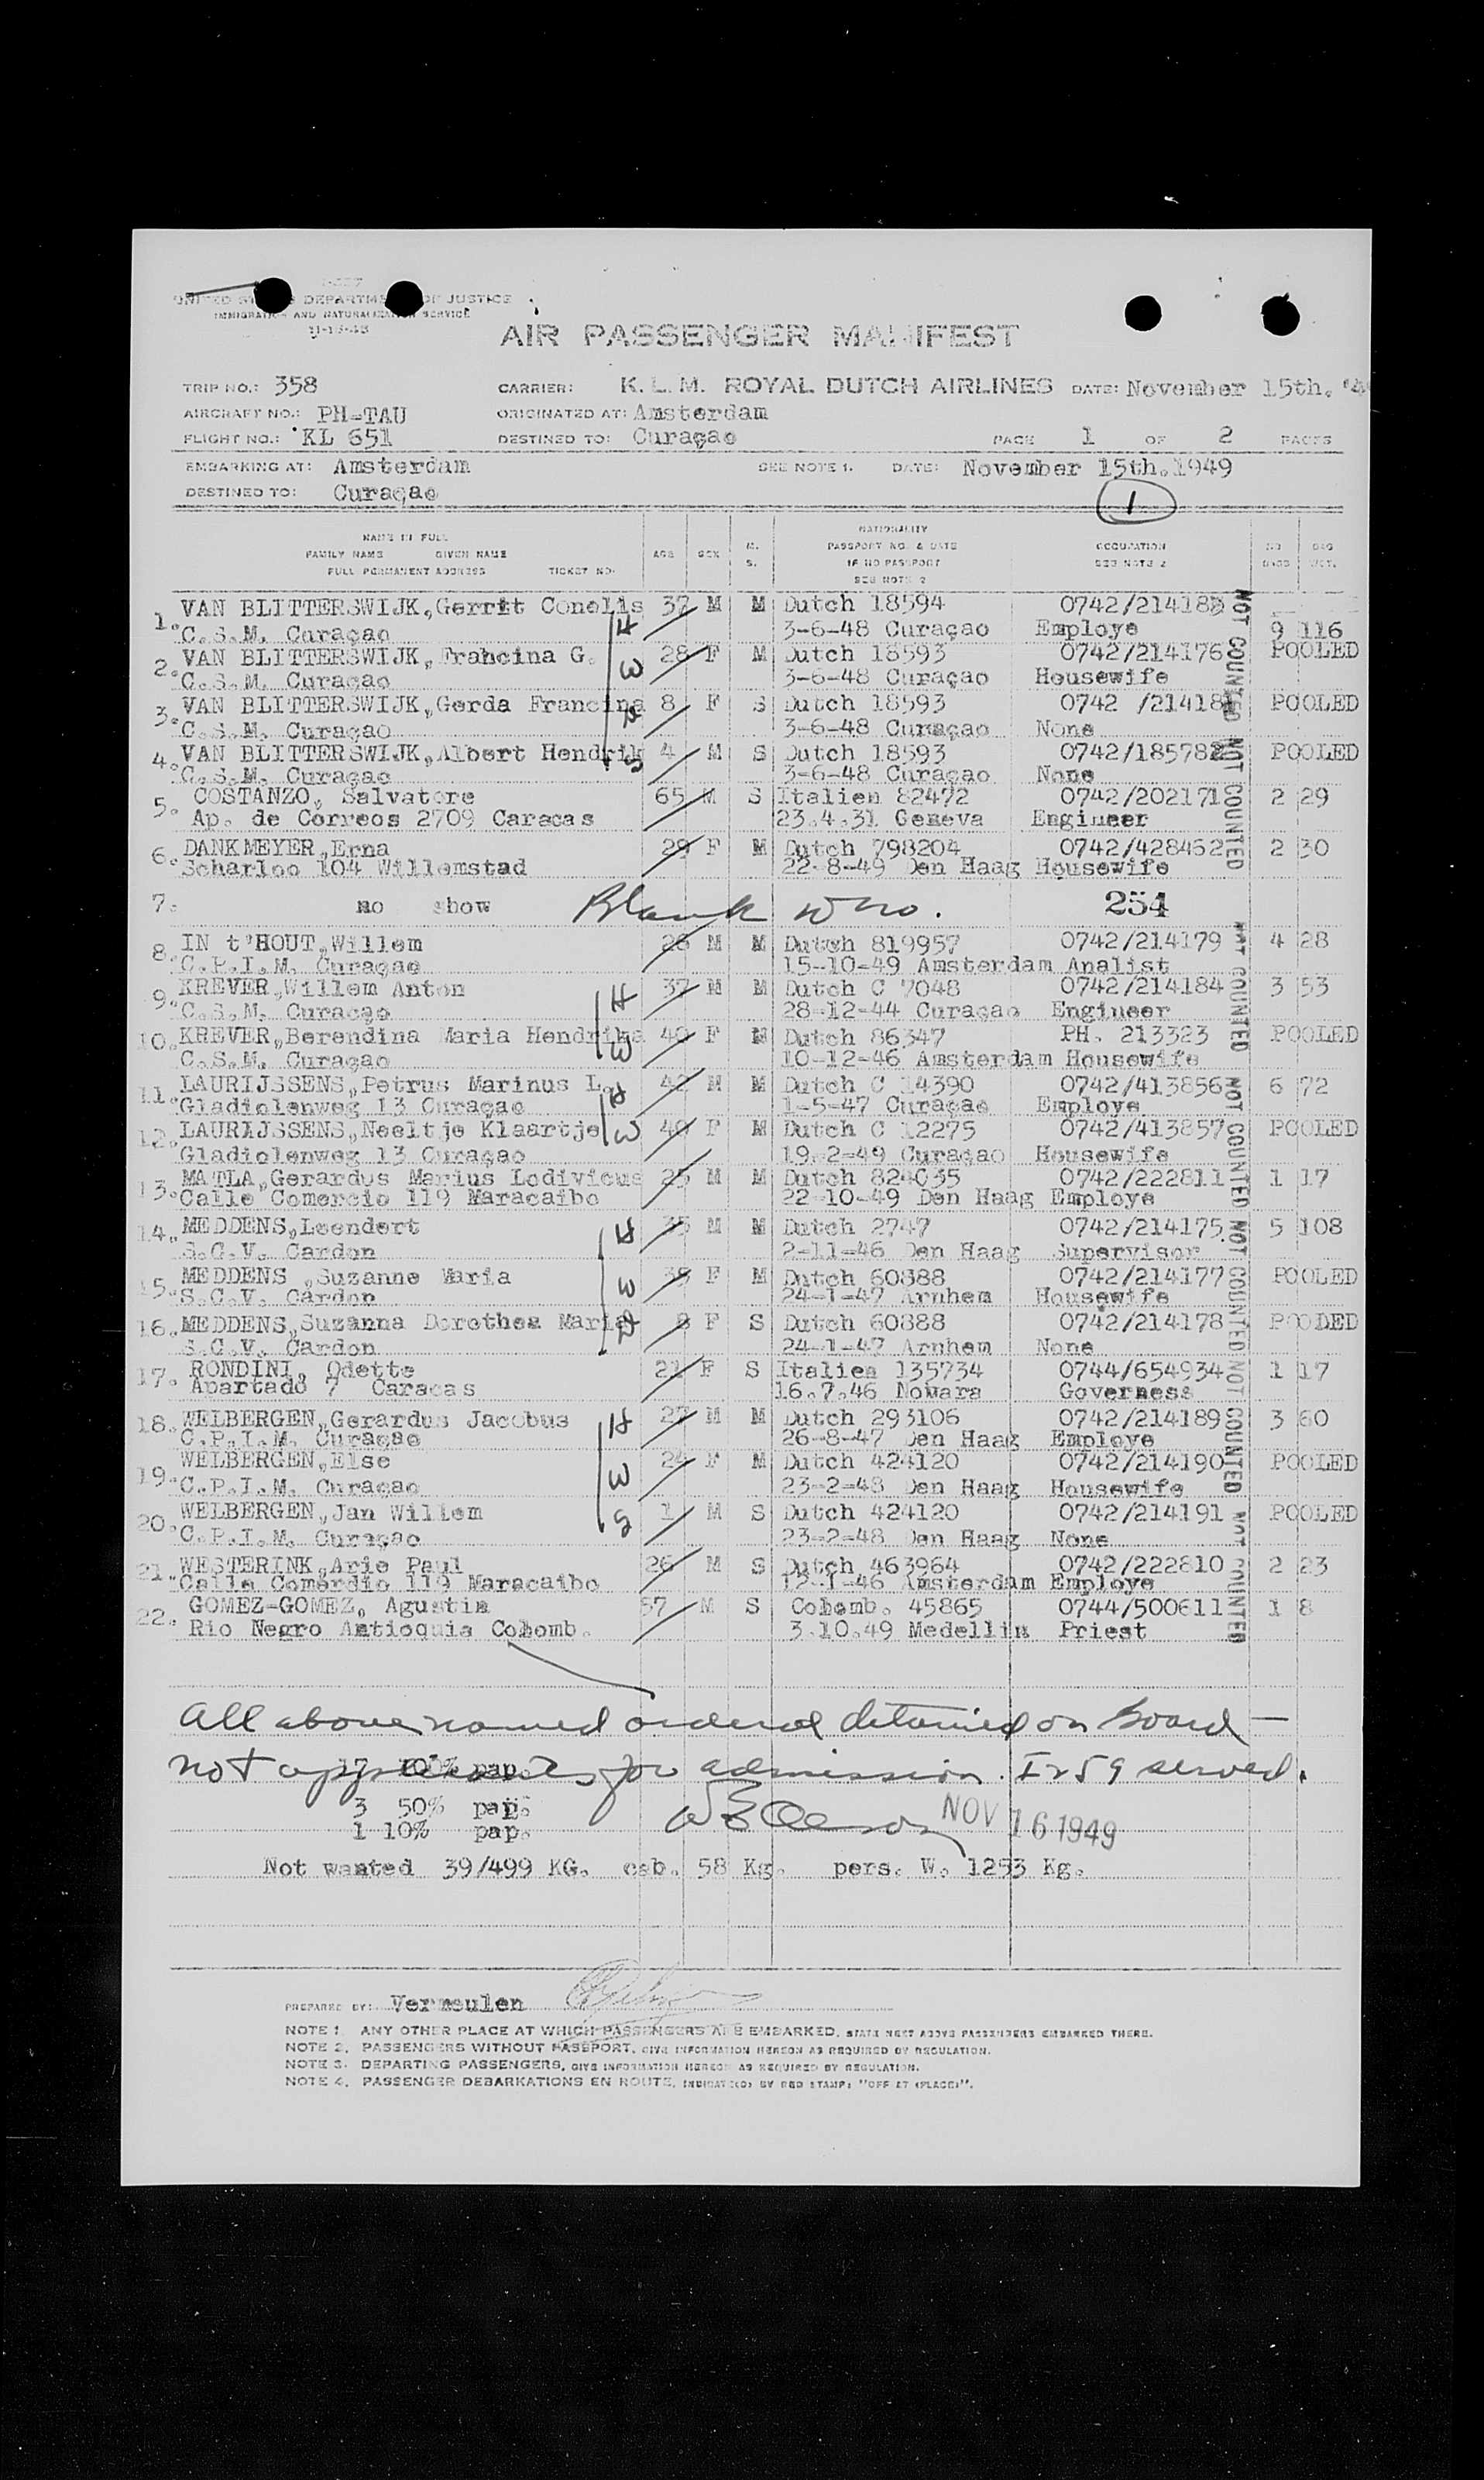 UNITED STATES DEPARTMENT OF JUSTICE
IMMIGRATION AND NATURALIZATION SERVICE
AIR PASSENGER MANIFEST
TRIP NO.: 358 CARRIER: K. L. M. ROYAL DUTCH AIRLINES DATE: November 15th.
AIRCRAFT NO.: PH-TAU ORIGINATED AT: Amsterdam
FLIGHT NO.: KL 651 DESTINED TO: Curaçao PAGE 1 OF 2 PAGES
EMBARKING AT: Amsterdam SEE NOTE 1. DATE: November 15th.1949
DESTINED TO: Curaçao
1
NAME IN FULL NATIONALITY
FAMILY NAME GIVEN NAME AGE SEX M. PASSPORT NO. & DATE OCCUPATION NO BAG
FULL PERMANENT ADDRESS TICKET NO. S. IF NO PASSPORT SEE NOTE 2 BAGS WT.
SEE NOTE 2
1. VAN BLITTERSWIJK,Gerrit Conelis 37 M M Dutch 18594
C.S.M. Curaçao 3-6-48 Curaçao Employe 9 116
2. VAN BLITTERSWIJK,Francina G. 28 F M Dutch 18593 0742/214176 POOLED
C.S.M. Curaçao 3-6-48 Curaçao Housewife
3. VAN BLITTERSWIJK,Gerda Francina 8 F S Dutch 18593 POOLED
C.S.M. Curaçao 3-6-48 Curaçao None
4. VAN BLITTERSWIJK,Albert Hendrik 4 M S Dutch 18593 POOLED
C.S.M. Curaçao 3-6-48 Curaçao None
5. COSTANZO, Salvatore 65 M S Italien 82472 0742/202171 2 29
Ap. de Correos 2709 Caracas 23.4.31 Geneva Engineer
6. DANKMEYER,Erna 29 F M Dutch 798204 0742/428462 2 30
Scharloo 104 Willemstad 22-8-49 Den Haag Housewife
7. no show Blank 254
8. IN t'HOUT,Willem 28 M M Dutch 819957 0742/214179 4 28
C.P.I.M. Curaçao 15-10-49 Amsterdam Analist
9. KREVER,Willem Anton 37 M M Dutch C 7048 0742/214184 3 53
C.S.M. Curaçao 28-12-44 Curaçao Engineer
10. KREVER,Berendina Maria Hendrika 40 F M Dutch 86347 PH. 213323 POOLED
C.S.M. Curaçao 10-12-46 Amsterdam Housewife
11. LAURIJSSENS,Petrus Marinus L. 42 M M Dutch C 14390 0742/413856 6 72
Gladiolenweg 13 Curaçao 1-5-47 Curaçao Employe
12. LAURIJSSENS,Neeltje Klaartje 40 F M Dutch C 12275 0742/413857 POOLED
Gladiolenweg 13 Curaçao 19-2-49 Curaçao Housewife
13. MATLA,Gerardus Marius Lodivicus 25 M M Dutch 824035 0742/222811 1 17
Calle Comercio 119 Maracaibo 22-10-49 Den Haag Employe
14. MEDDENS,Leendert 35 M M Dutch 2747 0742/214175 5 108
S.C.V. Cardon 2-11-46 Den Haag Supervisor
15. MEDDENS ,Suzanne Maria 39 F M Dutch 60888 0742/214177 POOLED
S.C.V. Cardon 24-1-47 Arnhem Housewife
16. MEDDENS,Suzanna Dorothea Maria 8 F S Dutch 60888 0742/214178 POODED
S.C.V. Cardon 24-1-47 Arnhem None
17. RONDINI, Odette 21 F S Italien 135734 0744/654934 1 17
Apartado 7 Caracas 16.7.46 Novara Governess
18. WELBERGEN,Gerardus Jacobus 27 M M Dutch 293106 0742/214189 3 60
C.P.I.M. Curaçao 26-8-47 Den Haag Employe
19. WELBERGEN,Else 24 F M Dutch 424120 0742/214190 POOLED
C.P.I.M. Curaçao 23-2-48 Den Haag Housewife
20. WELBERGEN,Jan Willem 1 M S Dutch 424120 0742/214191 POOLED
C.P.I.M. Curaçao 23-2-48 Den Haag None
21. WESTERINK,Arie Paul 26 M S Dutch 463964 0742/222810 2 23
Calle Comerdio 119 Maracaibo 12-1-46 Amsterdam Employe
22. GOMEZ-GOMEZ, Agustin 57 M S Colomb. 45865 0744/500611 1 8
Rio Negro Antioquia Colomb. 3.10.49 Medellin Priest
NOT COUNTED NOT COUNTED NOT COUNTED NOT COUNTED NOT COUNTED NOT COUNTED NOT COUNTED
All above named ordered detained on board —
not applicants for admission. I259 served.
17 100% pap.
3 50% pap.
1 10% pap.
NOV 16 1949
Not wanted 39/499 KG. cab. 58 Kg. pers. W. 1253 Kg.
PREPARED BY: Vermeulen
NOTE 1. ANY OTHER PLACE AT WHICH PASSENGERS ARE EMBARKED, STATE NEXT ABOVE PASSENGERS EMBARKED THERE.
NOTE 2. PASSENGERS WITHOUT PASSPORT, GIVE INFORMATION HEREON AS REQUIRED BY REGULATION.
NOTE 3. DEPARTING PASSENGERS, GIVE INFORMATION HEREON AS REQUIRED BY REGULATION.
NOTE 4. PASSENGER DEBARKATIONS EN ROUTE, INDICATED BY RED STAMP: "OFF AT (PLACE)".